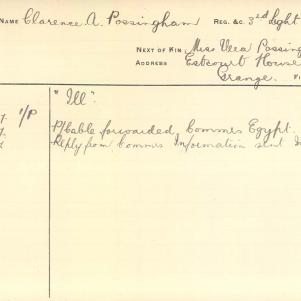 NAME Clarence A. Possingham REG. &C. 3rd Light
NEXT OF KIN. Miss Vera Possing
ADDRESS Estcourt House
Grange.
1/P "Ill".
P/Cable forwarded Commrs Egypt.
Reply from Commrs Information sent